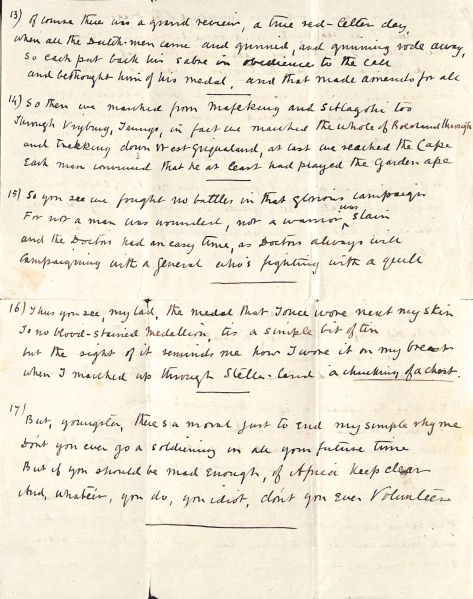 13) Of course there was a grand review, a true red-letter day,
when all the Dutch-men came and grinned, and grinning rode away,
So each put back his sabre in obedience to the call
and bethought him of his medal, and that made amends for all
14) So then we marched from Mafeking and Sitlagoli too
Through Vryburg, Taungs, in fact we marched the whole of Boerland through
and trekking down West Griqualand, at last we reached the Cape
Each man convinced that he at least had played the Garden ape
15) So you see we fought no battles in that glorious campaign
For not a man was wounded, not a warrior was slain
and the Doctors had an easy time, as Doctors always will
Campaigning with a General who's fighting with a quill
16) Thus you see, my lad, the medal that I once wore next my skin
Is no blood-stained medallion, tis a simple bit of tin
but the sight of it reminds me how I wore it on my breast
when I marched up through Stella-land a chucking of a chest.
17) But, youngster, there's a moral just to end my simple rhyme
Don't you ever go a soldiering in all your future time
But if you should be mad enough, of Africa keep clear
And, whate'er, you do, you idiot, don't you ever Volunteer